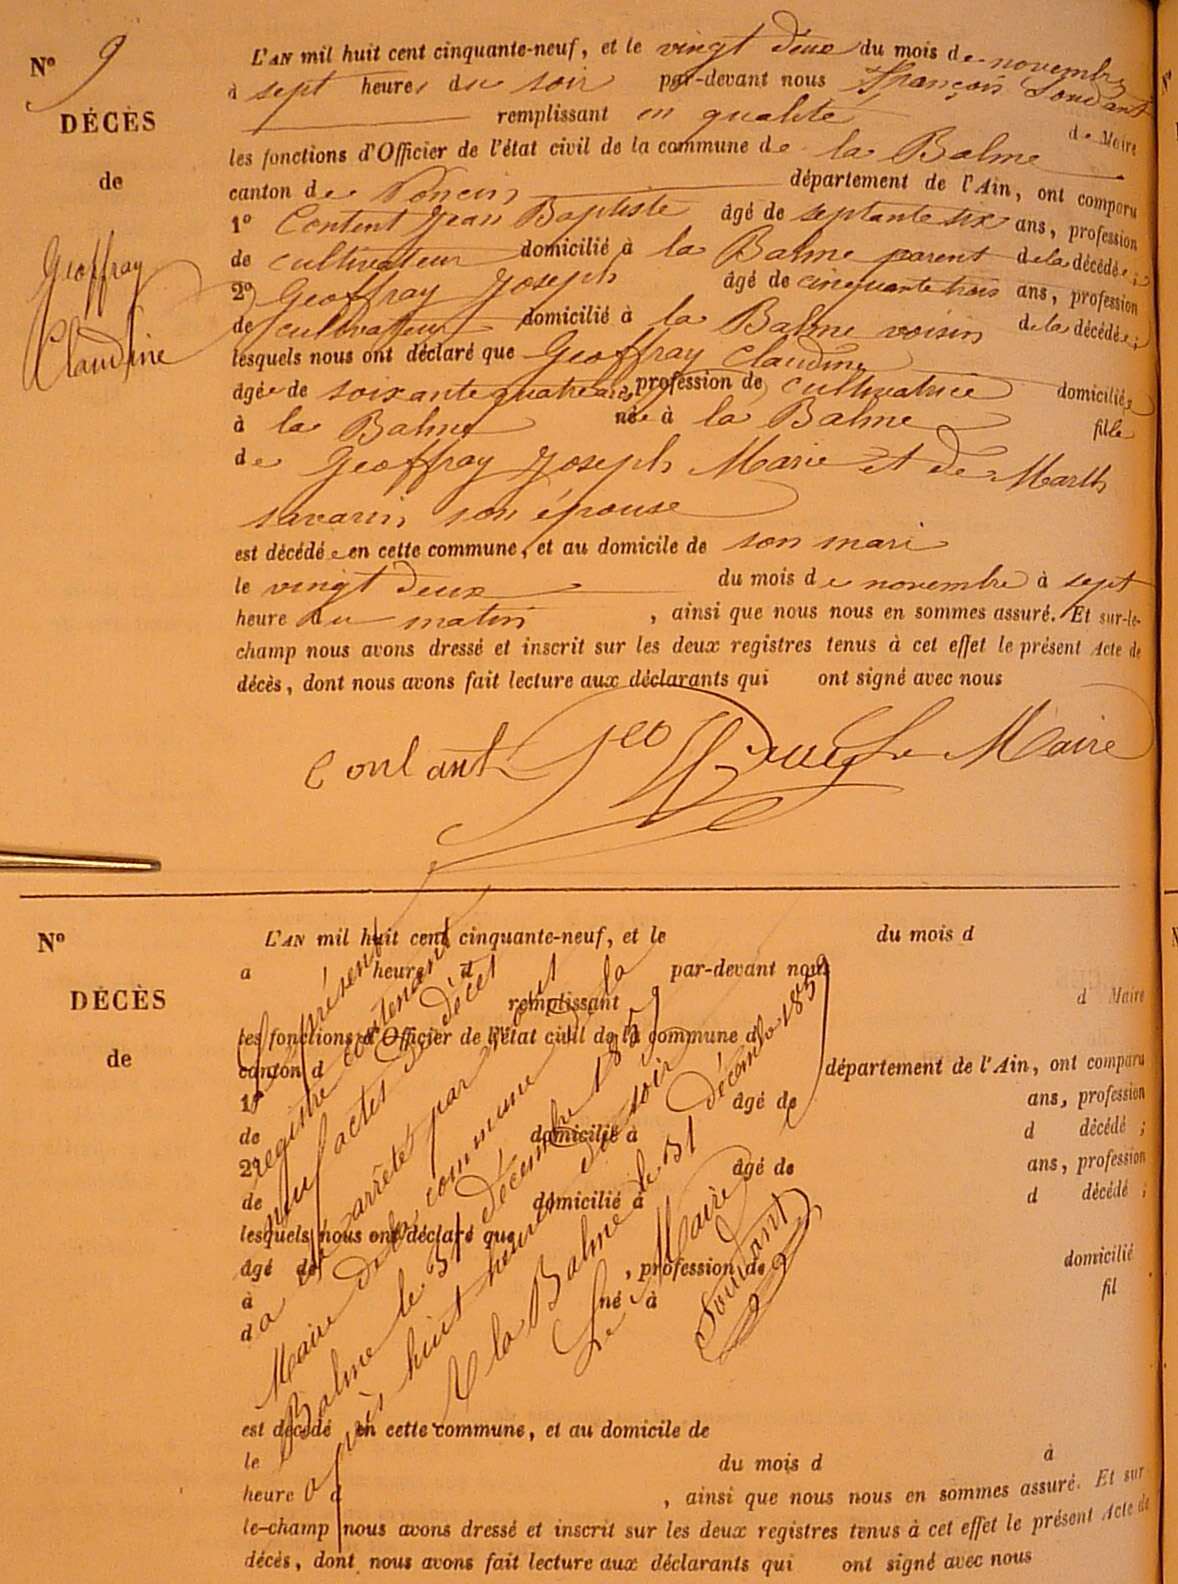 N° 9
DÉCÈS
de
Geoffray
Claudine
L'AN mil huit cent cinquante-neuf, et le vingt deux du mois de novembre
à sept heures du soir par-devant nous François Soudant
remplissant en qualité de Maire
les fonctions d'Officier de l'état civil de la commune de la Balme
canton de Poncin département de l'Ain, ont comparu
1° Content Jean Baptiste âgé de septante six ans, profession
de cultivateur domicilié à la Balme parent de la décédée;
2° Geoffray Joseph âgé de cinquante trois ans, profession
de cultivateur domicilié à la Balme voisin de la décédée;
lesquels nous ont déclaré que Geoffray Claudine
âgée de soixante quatre ans, profession de cultivatrice domiciliée
à la Balme née à la Balme fille
de Geoffray Joseph Marie et de Marth
savarin son épouse
est décédée en cette commune, et au domicile de son mari
le vingt deux du mois de novembre à sept
heure du matin, ainsi que nous nous en sommes assuré. Et sur-le-
champ nous avons dressé et inscrit sur les deux registres tenus à cet effet le présent Acte de
décès, dont nous avons fait lecture aux déclarants qui ont signé avec nous
Contant Le Maire
N°
DÉCÈS
de
L'AN mil huit cent cinquante-neuf, et le du mois d
a heure d par-devant nous
remplissant d Maire
les fonctions d'Officier de l'état civil de la commune d
canton d département de l'Ain, ont comparu
1° âgé de ans, profession
de domicilié à d décédé ;
2° âgé de ans, profession
de domicilié à d décédé ;
lesquels nous ont déclaré que
âgé de , profession de domicilié
à né à fil
d
est décédé en cette commune, et au domicile de
le du mois d à
heure d , ainsi que nous nous en sommes assuré. Et sur
le-champ nous avons dressé et inscrit sur les deux registres tenus à cet effet le présent Acte de
décès, dont nous avons fait lecture aux déclarants qui ont signé avec nous
Le présent
registre contenant
neuf actes de décès
a été arrêté par nous
Maire de la commune de la
Balme le 31 décembre 1859
après huit heures du soir
A la Balme le 31 décembre 1859
Le Maire
Soudant